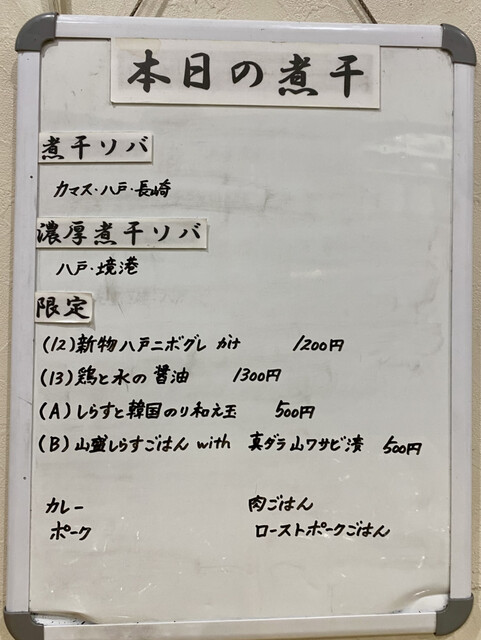 本日の煮干
煮干ソバ
カマス・八戸・長崎
濃厚煮干ソバ
八戸・境港
限定
(12)新物八戸ニボグレ かけ 1200円
(13)鶏と水の醤油 1300円
(A)しらすと韓国のり和え玉 500円
(B)山盛しらすごはん with 真ダラ山ワサビ漬 500円
カレー 肉ごはん
ポーク ローストポークごはん